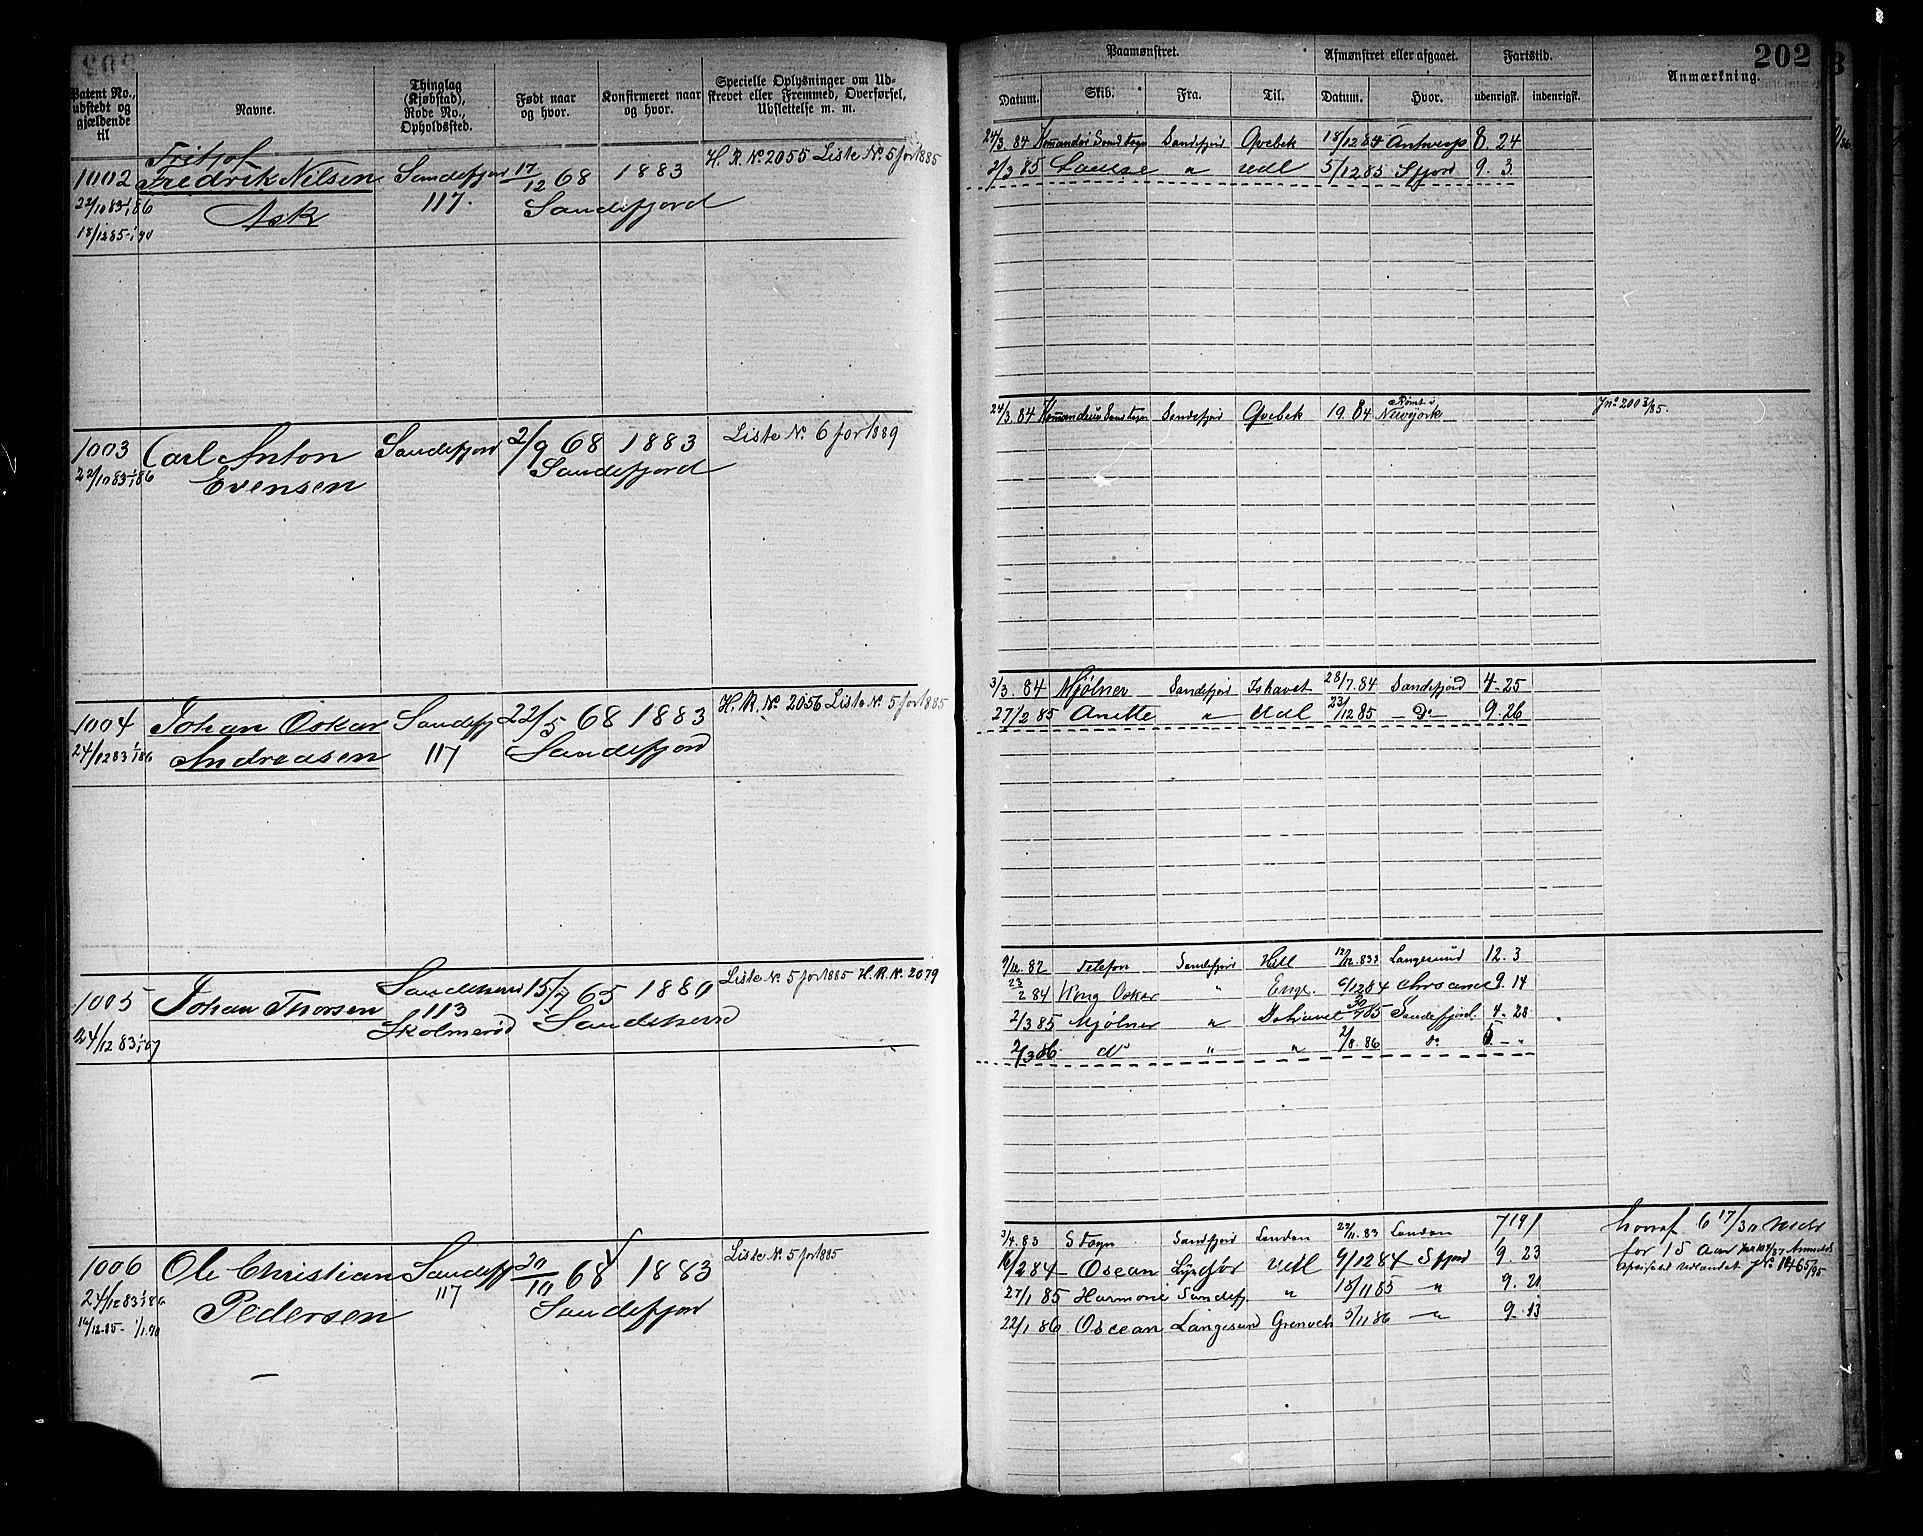 202
Patent No., udstedt og gjældende til
Navne.
Thinglag (Kjøbstad), Rode No., Opholdssted.
Født naar og hvor.
Konfirmeret naar og hvor.
Specielle Oplysninger om Udskrevet eller Fremmed, Overførsel, Udslettelse m. m.
Paamønstret.
Afmønstret eller afgaaet.
Fartstid.
Anmærkning.
Datum. Skib. Fra. Til. Datum. Hvor. udenrigsk. indenrigsk.
1002 Fritjof Fredrik Nilsen Sandefjord 17/12 68 1883 H. R. No 2055 Liste No. 5 for 1885
22/10 83 1/1 86 Ask 117. Sandefjord
18/12 85 - 1/1 90
24/3. 84 Sandefjord Qvebek 18/12 84 Antwerp 8. 24
2/3 85 " Udl 5/12 85 Sfjord 9. 3.
1003 Carl Anton Sandefjord 2/9 68 1883 Liste No. 6 for 1889
22/10 83 1/1 86 Evensen Sandefjord
24/3. 84 Sandefjord Qvebek 19. 84 Rømt i Newyork Jno 2003/85.
1004 Johan Oskar Sandefj 22/5 68 1883 H. R. No. 2056 Liste No. 5 for 1885
24/12 83 1/1 86 Andreasen 117 Sandefjord
3/3. 84 Mjølner Sandefjord Ishavet 28/7. 84 Sandefjord 4-25
27/2 85 Anette " Udl 23/12 85 - Do - 9. 26
1005 Johan Thorsen Sandeherred 15/7 65 1880 Liste No. 5 for 1885 H. R. No. 2079
24/12 83 1/1 87 113 Skolmerød Sandeherred
9/12. 82 Telefon Sandefjord Langesund 12. 3
23/2 84 Kong Oskar " Engl. 6/12 84 9. 14
2/3 85 Mjølner " Ishavet 30/7 85 Sandefjord. 4-28
2/3 86 do " " 2/8. 86 do 5. - "
1006 Ole Christian Sandefj 20/10 64 1883 Liste No. 5 for 1885
24/12 83 1/1 86 Pedersen 117 Sandefjord
14/12. 85 - 1/1. 90
3/4. 83 Sandfjord London 22/11. 83 London 7 19/
16/2 84 Oscean Udl 9/12 84 Sfjord 9. 23
27/1 85 Harmoni Sandefj. " 18/11 85 " 9. 20
22/1 86 Oscean Langesund 5/11 86 " 9-13
hvoraf 6 17/30
for 15 Aar